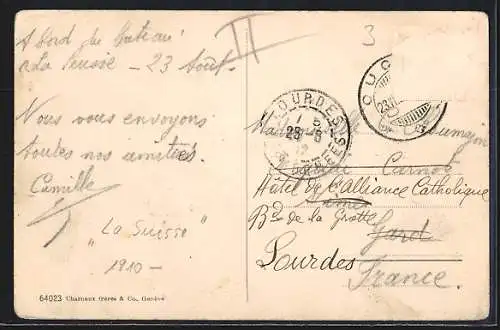 A bord du bateau
"La Suisse - 23 Août.
Nous vous envoyons
toutes nos amitiés.
Camille
"La Suisse"
1910 -
64023 Charnaux frères & Co., Genève
3
LOURDES
OUC
23
Carnot
Hôtel de l'Alliance Catholique
Bd de la Grotte
Gard
Lourdes
France.